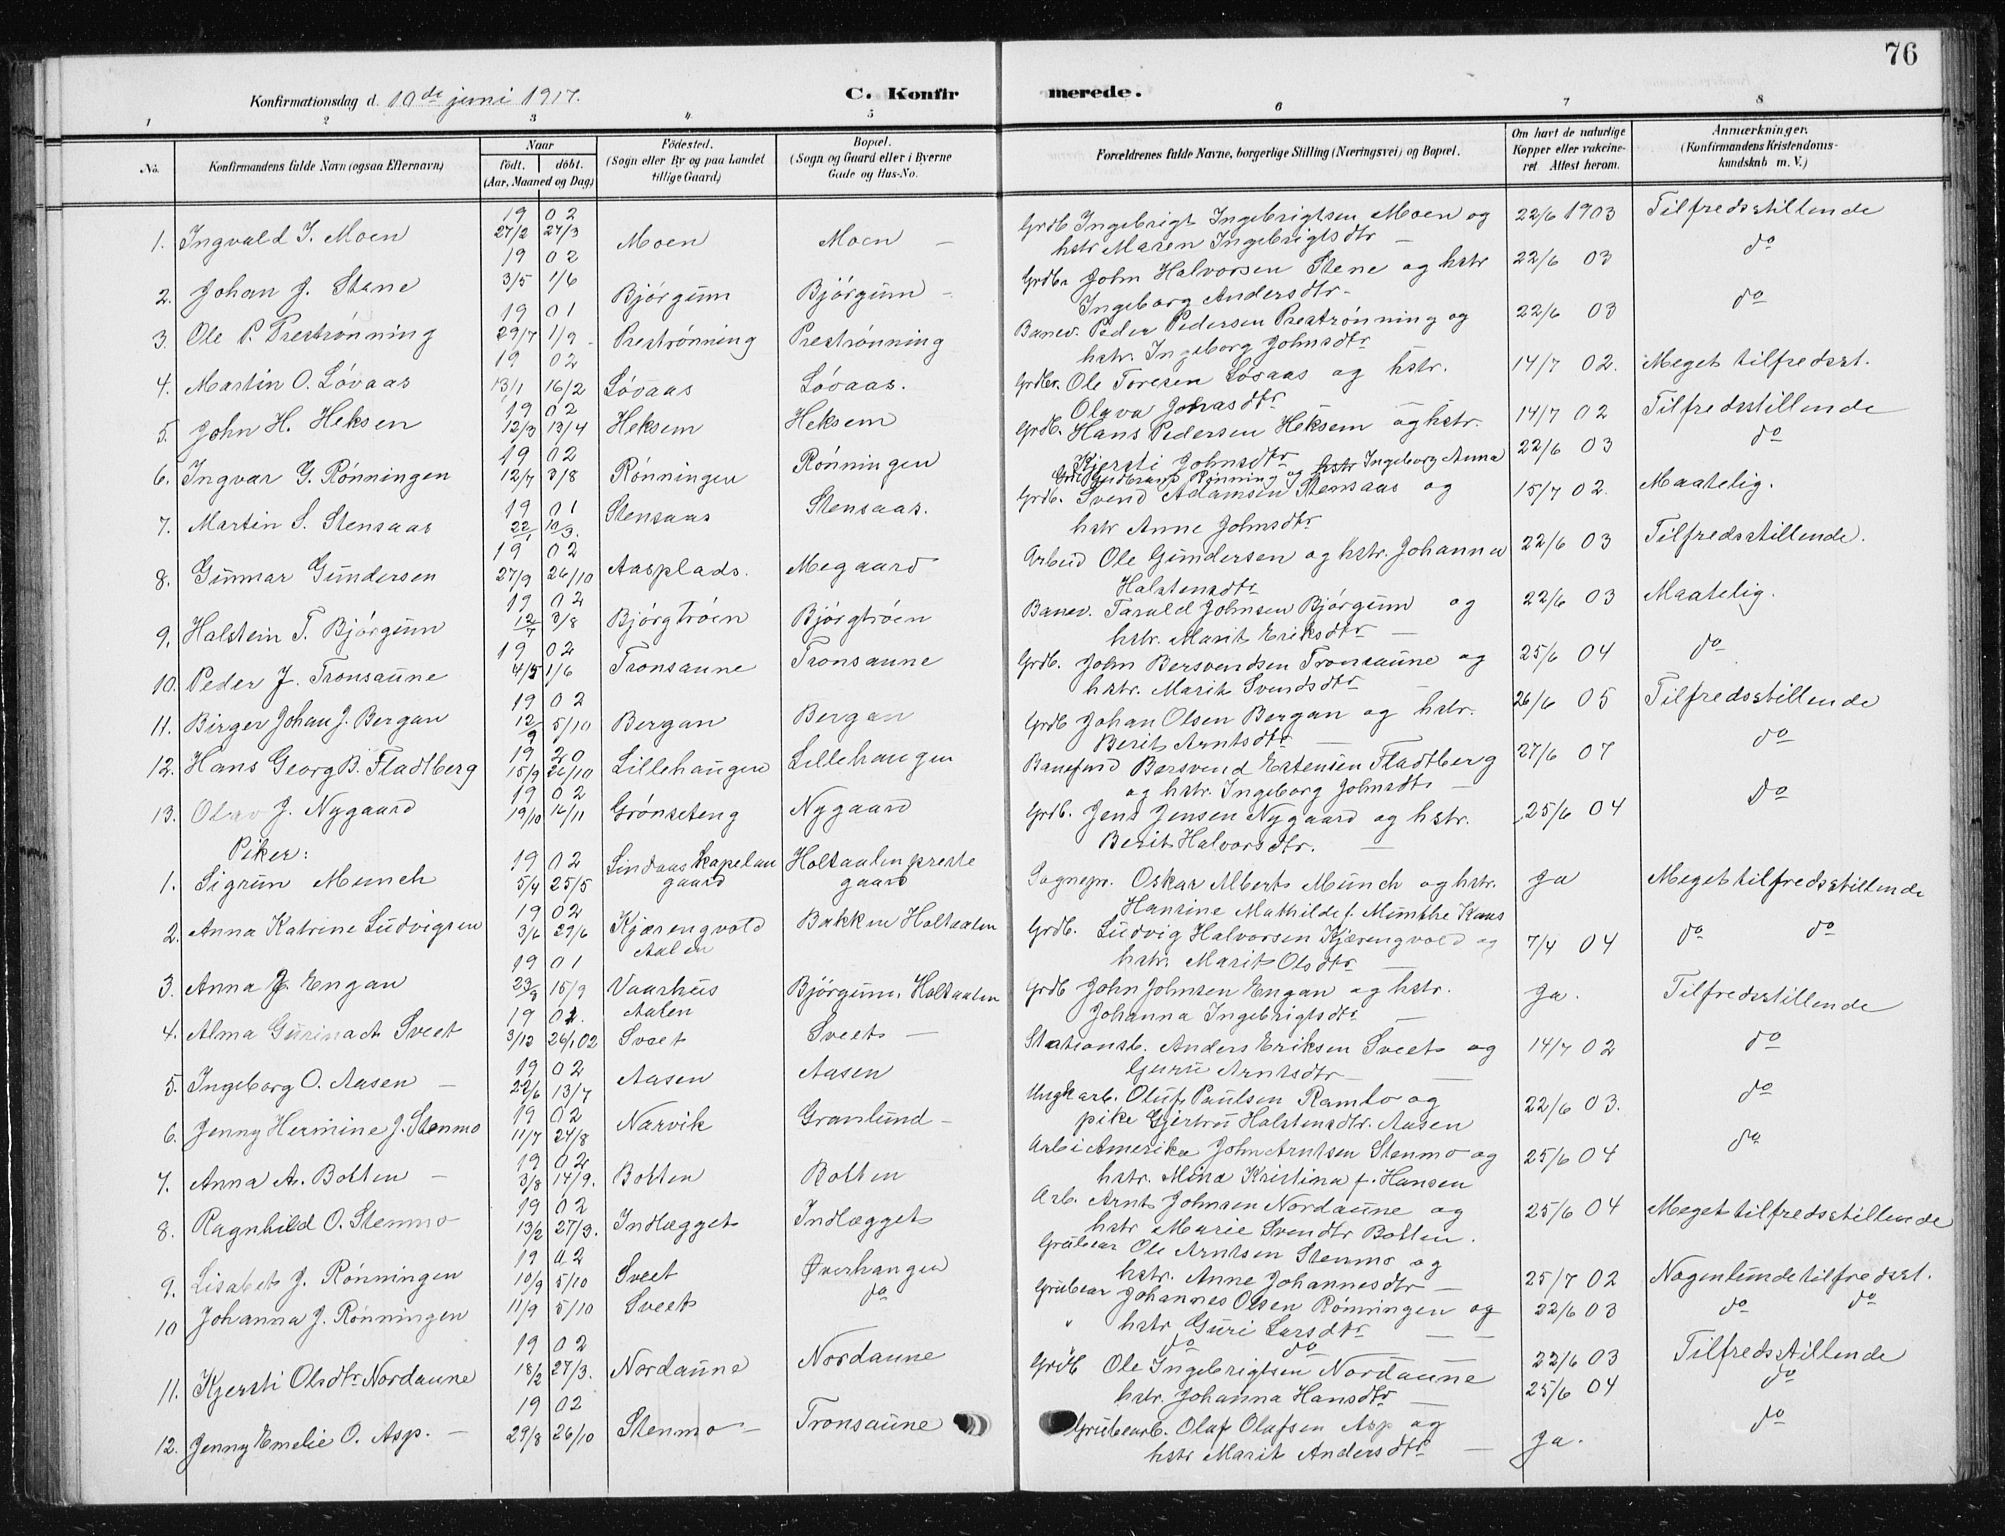 76
Konfirmationsdag d. 10de juni 1917. C. Konfirmerede.
1 2 3 4 5 6 7 8
No. Konfirmandens fulde Navn (ogsaa Efternavn) Naar født. døbt. (Aar, Maaned og Dag) Fødested. (Sogn eller By og paa Landet tillige Gaard) Bopæl. (Sogn og Gaard eller i Byerne Gade og Hus-No. Forældrenes fulde Navne, borgerlige Stilling (Næringsvei) og Bopæl. Om havt de naturlige Kopper eller vakcineret. Attest herom. Anmærkninger. (Konfirmandens Kristendomskundskab m. V.)
1. Ingvald I. Moen 1902 27/2 27/3 Moen Moen – Grdb Ingebrigt Ingebrigtsen Moen og 22/6 1903 Tilfredsstillende
hstr Maren Ingebrigtsdtr –
2. Johan J. Stene 1902 3/5 1/6 Bjórgum Bjórgum – Grdbr John Halvorsen Stene og hstr 22/6 03 do
Ingeborg Andersdtr –
3. Ole P. Prestrónning 1901 29/7 1/9 Prestrónning Prestrónning Banev. Peder Pedersen Prestrónning og 22/6 03 do
hstr. Ingeborg Johnsdtr
4. Martin O. Lóvaas 1902 13/1 16/2 Lóvaas Lóvaas. Grdbr. Ole Toresen Lóvaas og hstr. 14/7 02. Meget tilfredsst.
Olava Jonasdtr
5. John H. Heksem 1902 12/3 13/4 Heksem Heksem Grdb. Hans Pedersen Heksem og hstr. 14/7 02 Tilfredsstillende
Kjersti Johnsdtr
6. Ingvar G. Rónningen 1902 12/7 3/8 Rónningen Rónningen Grdb Gudbrand Rónning og hstr Ingeborg Anna 22/6 03 do
7. Martin S. Stensaas 1901 22/1 10/3. Stensaas Stensaas. Grdb. Svend Adamsen Stensaas og 15/7 02. Maatelig.
hstr Anne Johnsdtr
8. Gunnar Gundersen 1902 27/9 26/10 Aasplads. Megaard Arbeid Ole Gundersen og hstr. Johanna 22/6 03 Tilfredsstillende.
Halstensdtr
9. Halstein T. Bjórgum 1902 12/7 3/8 Bjórgtróen Bjórgtróen Banev. Tarald Johnsen Bjórgum og 22/6 03 Maatelig.
hstr. Marit Eriksdtr –
10. Peder J. Tronsaune 1902 4/5 1/6 Tronsaune Tronsaune Grdb. John Bersvendsen Tronsaune og 25/6 04 do
hstr. Marit Svendsdtr
11. Birger Johan J. Bergan 1902 12/9 5/10 Bergan Bergan Grdb Johan Olsen Bergan og hstr. 26/6 05 Tilfredsstillende
Berit Arntsdtr –
12. Hans Georg B. Fladtberg 1920 15/9 26/10 Lillehaugen Lillehaugen Baneform Bersvend Estensen Fladtberg 27/6 07 do
og hstr. Ingeborg Johnsdtr –
13. Olav J. Nygaard 1902 19/10 16/11 Grónseteng Nygaard Grdb. Jens Jensen Nygaard og hstr. 25/6 04 Do
Berit Halvorsdtr. –
Piker:
1. Sigrun Munch 1902 5/4 25/5 Lindaas Kapelangaard Holtaalen prestegaard Sognepr. Oskar Albert Munch og hstr. Ja Meget tilfredsstillende
Hansine Mathilde f. Munthe Kaas
2. Anna Katrine Ludvigsen 1902 3/6 29/6 Kjærengvold Aalen Bakken Holtaalen Grdb. Ludvig Halvorsen Kjærengvold og 7/4 04 do do
hstr. Marit Olsdtr –
3. Anna J. Engan 1901 23/8 15/9 Vaarhus Aalen Bjórgum, Holtaalen Grdb John Johnsen Engan og hstr. Ja. Tilfredsstillende
Johanna Ingebrigtsdtr –
4. Alma Gurina A Sveet 1901. 3/12 26/1 02 Sveet Sveet – Stationsb. Anders Eriksen Sveet og 14/7 02 do
Guru Arntsdtr –
5. Ingeborg O. Aasen – 1902 22/6 13/7 Aasen Aasen Ungkarb. Oluf Paulsen Ramlo og 22/6 03. do
pike Gjertru Halstensdtr. Aasen
6. Jenny Hermine J. Stenmo 1902 11/7 24/8 Narvik Granlund – Arb i Amerika John Arntsen Stenmo og 25/6 04 do
hstr. Mina Kristina f. Hansen
7. Anna A. Botten – 1902 3/8 14/9. Botten Botten Arb. Arnt Johnsen Nordaune og 25/6 04 Meget tilfredsstillende
hstr Marie Svendtr Botten.
8. Ragnhild O. Stenmo 1902 13/2 27/3. Indlægget Indlægget Grubear Ole Arntsen Stenmo og
hstr. Anne Johannesdtr – 25/7 02 Nogenlunde tilfredsst.
9. Lisabet J. Rónningen 1902 10/9 5/10 Sveet Øverhaugen Grubear Johannes Olsen Rónningen og 22/6 03 do do
hstr Guri Larsdtr – –
10 Johanna J. Rónningen 11/9 5/10 Sveet do " do do
11. Kjersti Olsdtr Nordaune 1902 18/2 27/3. Nordaune Nordaune Grdb Ole Ingebrigtsen Nordaune 22/6 03 Tilfredsstillende
hstr. Johanna Hansdtr – 25/6 04 do
12. Jenny Emelie O. Asp. – 1902 29/8 26/10 Stenmo – Tronsaune Grubearb. Olaf Olafsen Asp og do
hstr Marit Andersdtr – Ja.